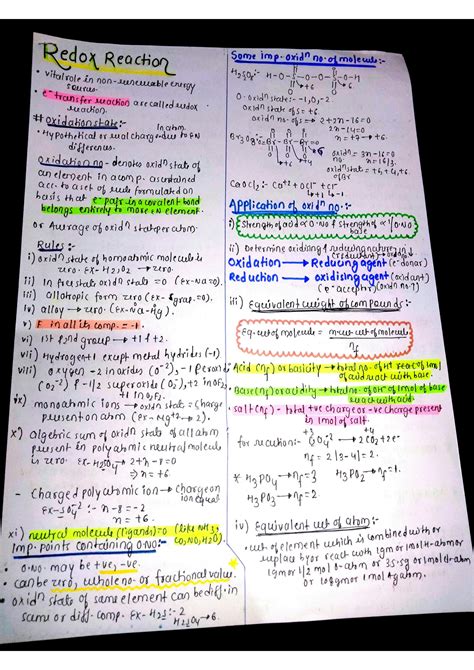 Redox Reaction
• vital role in non-renewable energy
sources.
• e⁻ transfer reaction are called redox
reaction.
# Oxidation state:-
in atom.
• Hypothetical or real charge due to EN
differences.
Oxidation no - denotes oxidⁿ state of
an element in a comp. ascertained
acc. to a set of rules formulated on
basis that e⁻ pair in a covalent bond
belongs entirely to more EN element.
or Average of oxidⁿ state per atom.
Rules :-
i) oxidⁿ state of homoatomic molecule is
zero. Ex- H₂, O₂ → zero.
ii) In free state oxidⁿ state = 0 (Ex- Na=0).
iii) allotropic form zero (Ex- grap.=0).
iv) alloy → zero (Ex- Na-Hg).
v) F in all its comp. = -1.
vi) 1st & 2nd group → +1 & +2.
vii) Hydrogen +1 except metal hydrides (-1)
viii) oxygen -2 in oxides (O⁻²), -1 peroxide
(O₂⁻²) & -1/2 superoxide (O₂⁻), +2 in OF₂,
+1 in O₂F₂.
ix) monoatomic ions → oxidⁿ state = charge
present on atom (Ex- Mg⁺² → 2).
x) algebric sum of oxidⁿ state of all atom
present in polyatomic neutral molecule
is zero. Ex- H₂SO₄ → 2+n-8=0
⇒ n = +6.
- Charged polyatomic ion → charge on
ion equal
Ex- SO₄²⁻ :- n-8 = -2
n = +6.
xi) neutral molecule (ligands)=0 (like NH₃,
CO, NO, H₂O).
Imp. points containing O.NO:-
O.NO. may be +ve, -ve.
• can be zero, whole no. or fractional value.
• oxidⁿ state of same element can be diff. in
same or diff. comp. Ex- H₂S:- -2
H₂SO₄ → 6.
Some imp. oxidⁿ no. of molecule:-
H₂SO₅:- H-O-S-O-O-H
O. oxidⁿ states:- -1, 0, -2.
oxidⁿ state of S = +6
oxidⁿ no. of S₂O₈ → 2+2n-16=0
2n-14=0
n = +7 → +6.
Br₃O₈:- O=Br-Br-Br=O
oxidⁿ = 3n-16=0
n = 16/3.
oxidⁿ state = +6, +4, +6.
of Br
CaOCl₂:- Ca⁺² OCl⁻ + Cl⁻
+1 -1.
Application of oxidⁿ no.:-
ii) Determine oxidising & reducing nature
Oxidation → Reducing agent (e⁻ donar)
Reduction → oxidising agent (oxidant)
(e⁻ acceptor)
iii) Equivalent weight of compounds:-
Eq. wt. of molecule = m. wt. of molecule
nf
Acid (nf) or basicity → total no. of H⁺ of acid of 1 mol
of acid react with base.
Base (nf) or acidity → total no. of OH⁻ of 1 mol of base
react with acid.
• salt (nf) - total +ve charge or -ve charge present
in 1 mol of salt.
for reactions:- C₂O₄²⁻ → 2CO₂ + 2e⁻
nf = 2|3-4| = 2.
* H₃PO₄ → nf = 3
H₃PO₃ → nf = 2.
H₃PO₂ → nf = 1.
iv) Equivalent wt of atom:-
• wt. of element which is combined with or
replace by or react with 1gm or 1 mol H-atom or